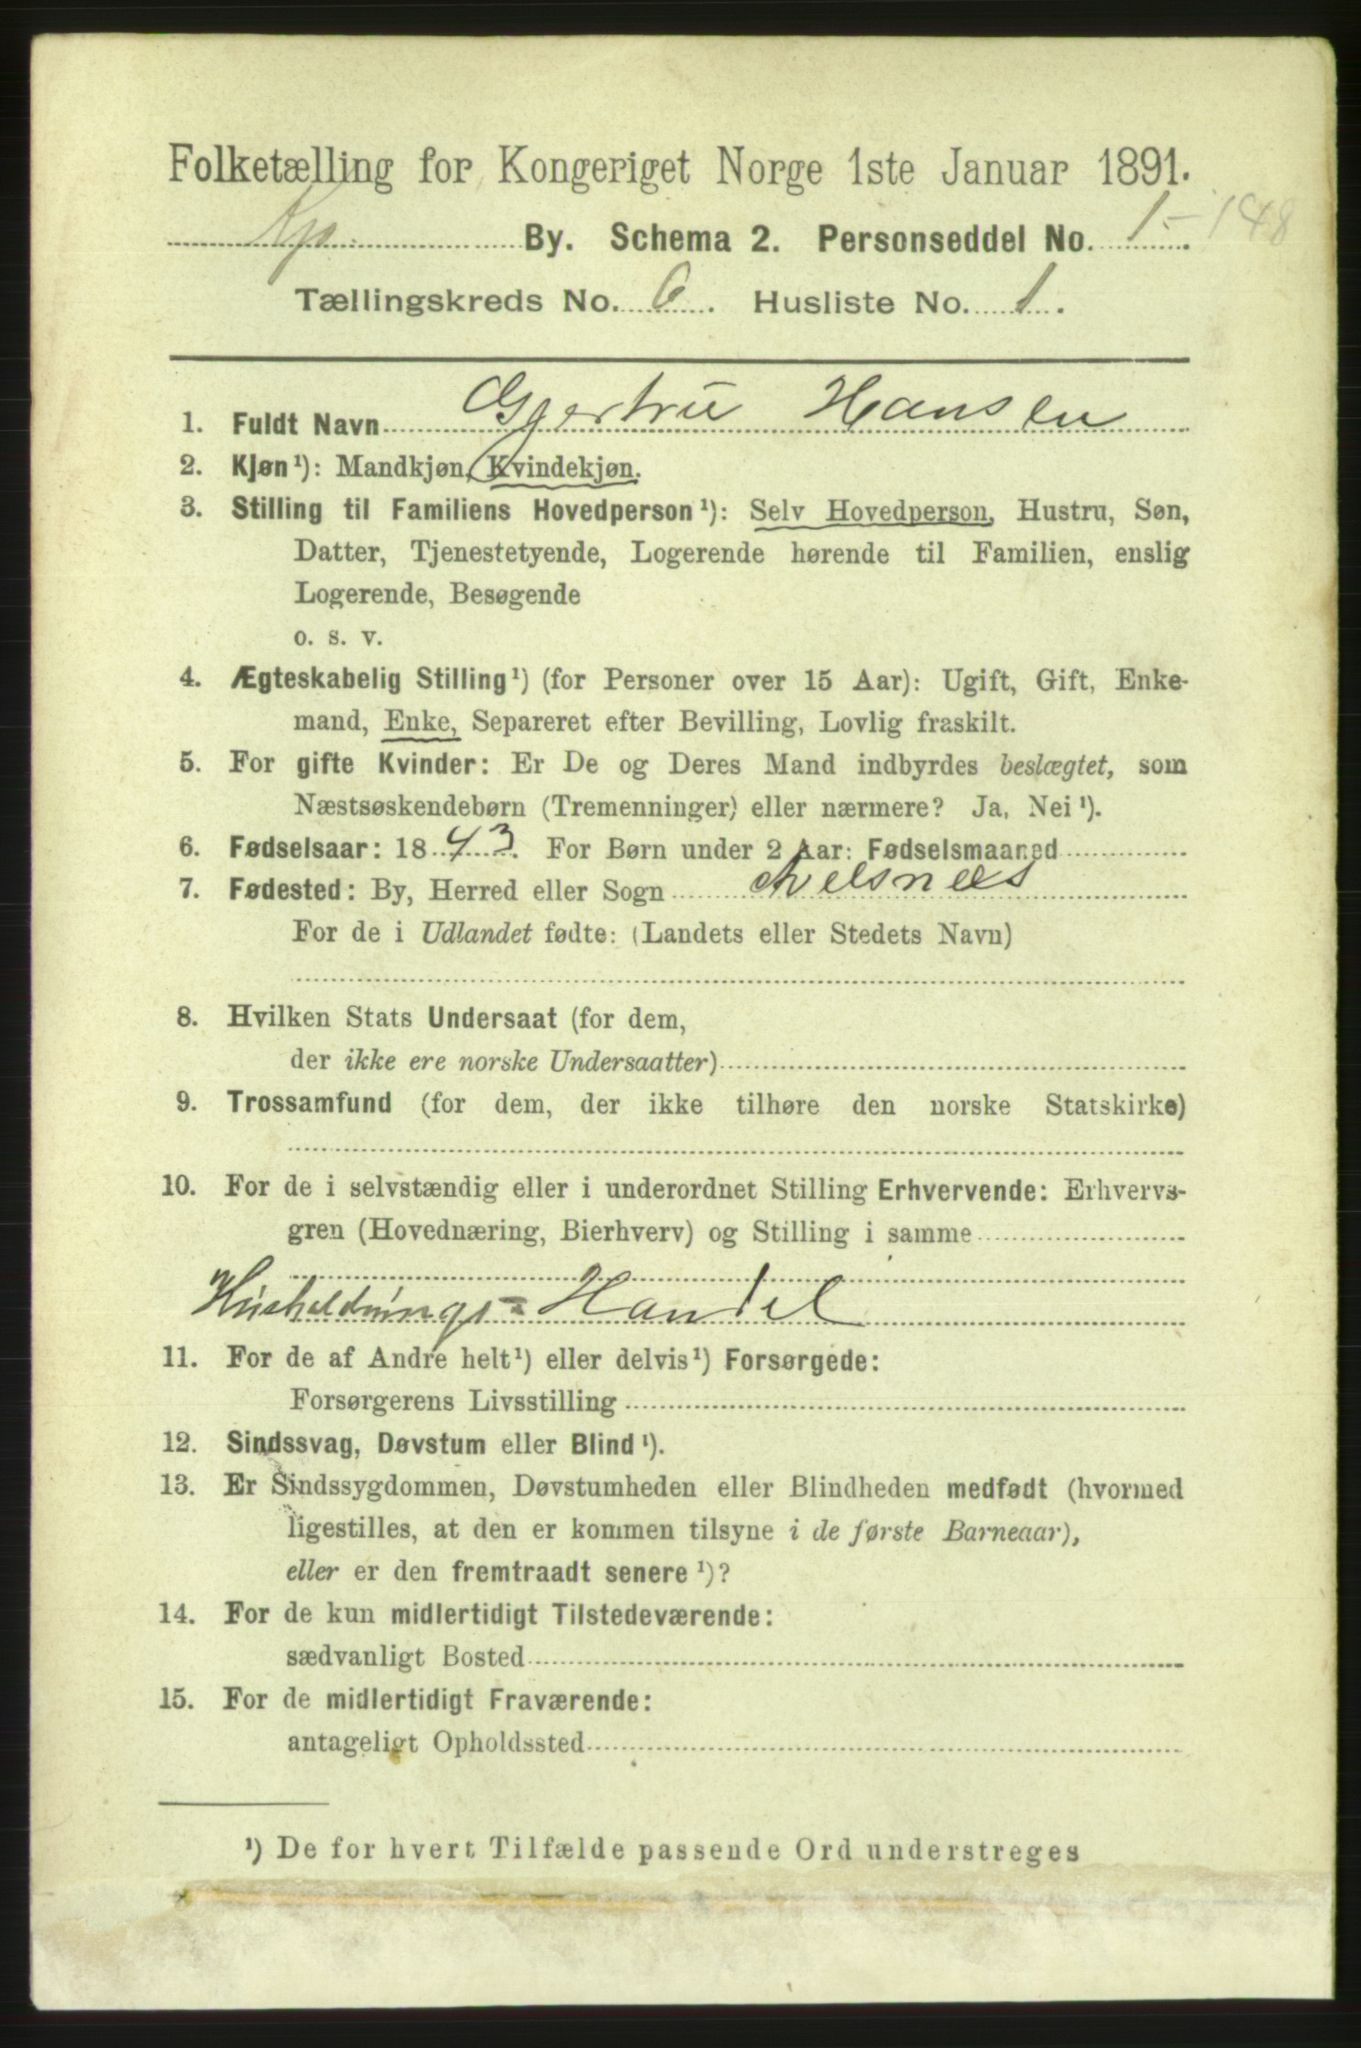 Folketælling for Kongeriget Norge 1ste Januar 1891.
Kjø. By. Schema 2. Personseddel No. 1 - 148
Tællingskreds No. 6. Husliste No. 1.
1. Fuldt Navn Gjertru Hansen
2. Kjøn¹): Mandkjøn, Kvindekjøn.
3. Stilling til Familiens Hovedperson¹): Selv Hovedperson, Hustru, Søn,
Datter, Tjenestetyende, Logerende hørende til Familien, enslig
Logerende, Besøgende
o. s. v.
4. Ægteskabelig Stilling¹) (for Personer over 15 Aar): Ugift, Gift, Enke-
mand, Enke, Separeret efter Bevilling, Lovlig fraskilt.
5. For gifte Kvinder: Er De og Deres Mand indbyrdes beslægtet, som
Næstsøskendebørn (Tremenninger) eller nærmere? Ja, Nei¹).
6. Fødselsaar: 1843. For Børn under 2 Aar: Fødselsmaaned
7. Fødested: By, Herred eller Sogn
For de i Udlandet fødte: (Landets eller Stedets Navn)
8. Hvilken Stats Undersaat (for dem,
der ikke ere norske Undersaatter)
9. Trossamfund (for dem, der ikke tilhøre den norske Statskirke)
10. For de i selvstændig eller i underordnet Stilling Erhvervende: Erhvervs-
gren (Hovednæring, Bierhverv) og Stilling i samme
Husholdnings-Handel
11. For de af Andre helt¹) eller delvis¹) Forsørgede:
Forsørgerens Livsstilling
12. Sindssvag, Døvstum eller Blind¹).
13. Er Sindssygdommen, Døvstumheden eller Blindheden medfødt (hvormed
ligestilles, at den er kommen tilsyne i de første Barneaar),
eller er den fremtraadt senere¹)?
14. For de kun midlertidigt Tilstedeværende:
sædvanligt Bosted
15. For de midlertidigt Fraværende:
antageligt Opholdssted
¹) De for hvert Tilfælde passende Ord understreges